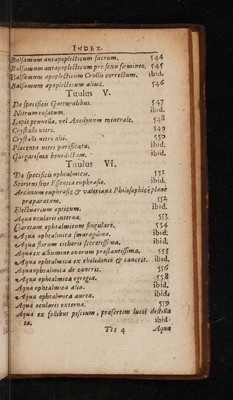 INDEX.
Balsamum antapoplecticum sacrum. 544
Balsamum antapoplecticum pro sexu fœmineo. 545
Balsamum apoplecticum Crollii correctum. ibid.
Balsamum apoplecticum aliud. 546
Titulus V.
De specificis Gutturalibus. 547
Nitrum rosatum. ibid.
Lapis prunellæ, vel Anodynum minerale. 548
Crystalli nitri. 549
Crystalli nitri alii. 550
Placenta nitri purificata. ibid.
Gargarisma benedictum. ibid.
Titulus VI.
De specificis ophtalmicis. 551
Spiritus sive Essentia euphrasiæ. ibid.
Arcanum euphrasiæ & valerianæ Philosophicè planè
præparatum. 552
Electuarium opticum. ibid.
Aqua ocularis interna. 553
Claretum ophtalmicum singulare. 554
Aqua ophtalmica smaragdina. ibid.
Aqua florum cichorii secretissima. ibid.
Aqua ex albumine ovorum præstantissima. 555
Aqua ophtalmica ex chelidonio & cancris. ibid.
Aqua ophtalmica de cancris. 556
Aqua ophtalmica egregia. 558
Aqua ophtalmica alia. ibid.
Aqua ophtalmica aurea. ibid.
Aqua ocularis externa. 559
Aqua ex fellibus piscium, præsertim lucii destilla
ta. ibid.
Ttt 4 Aqua